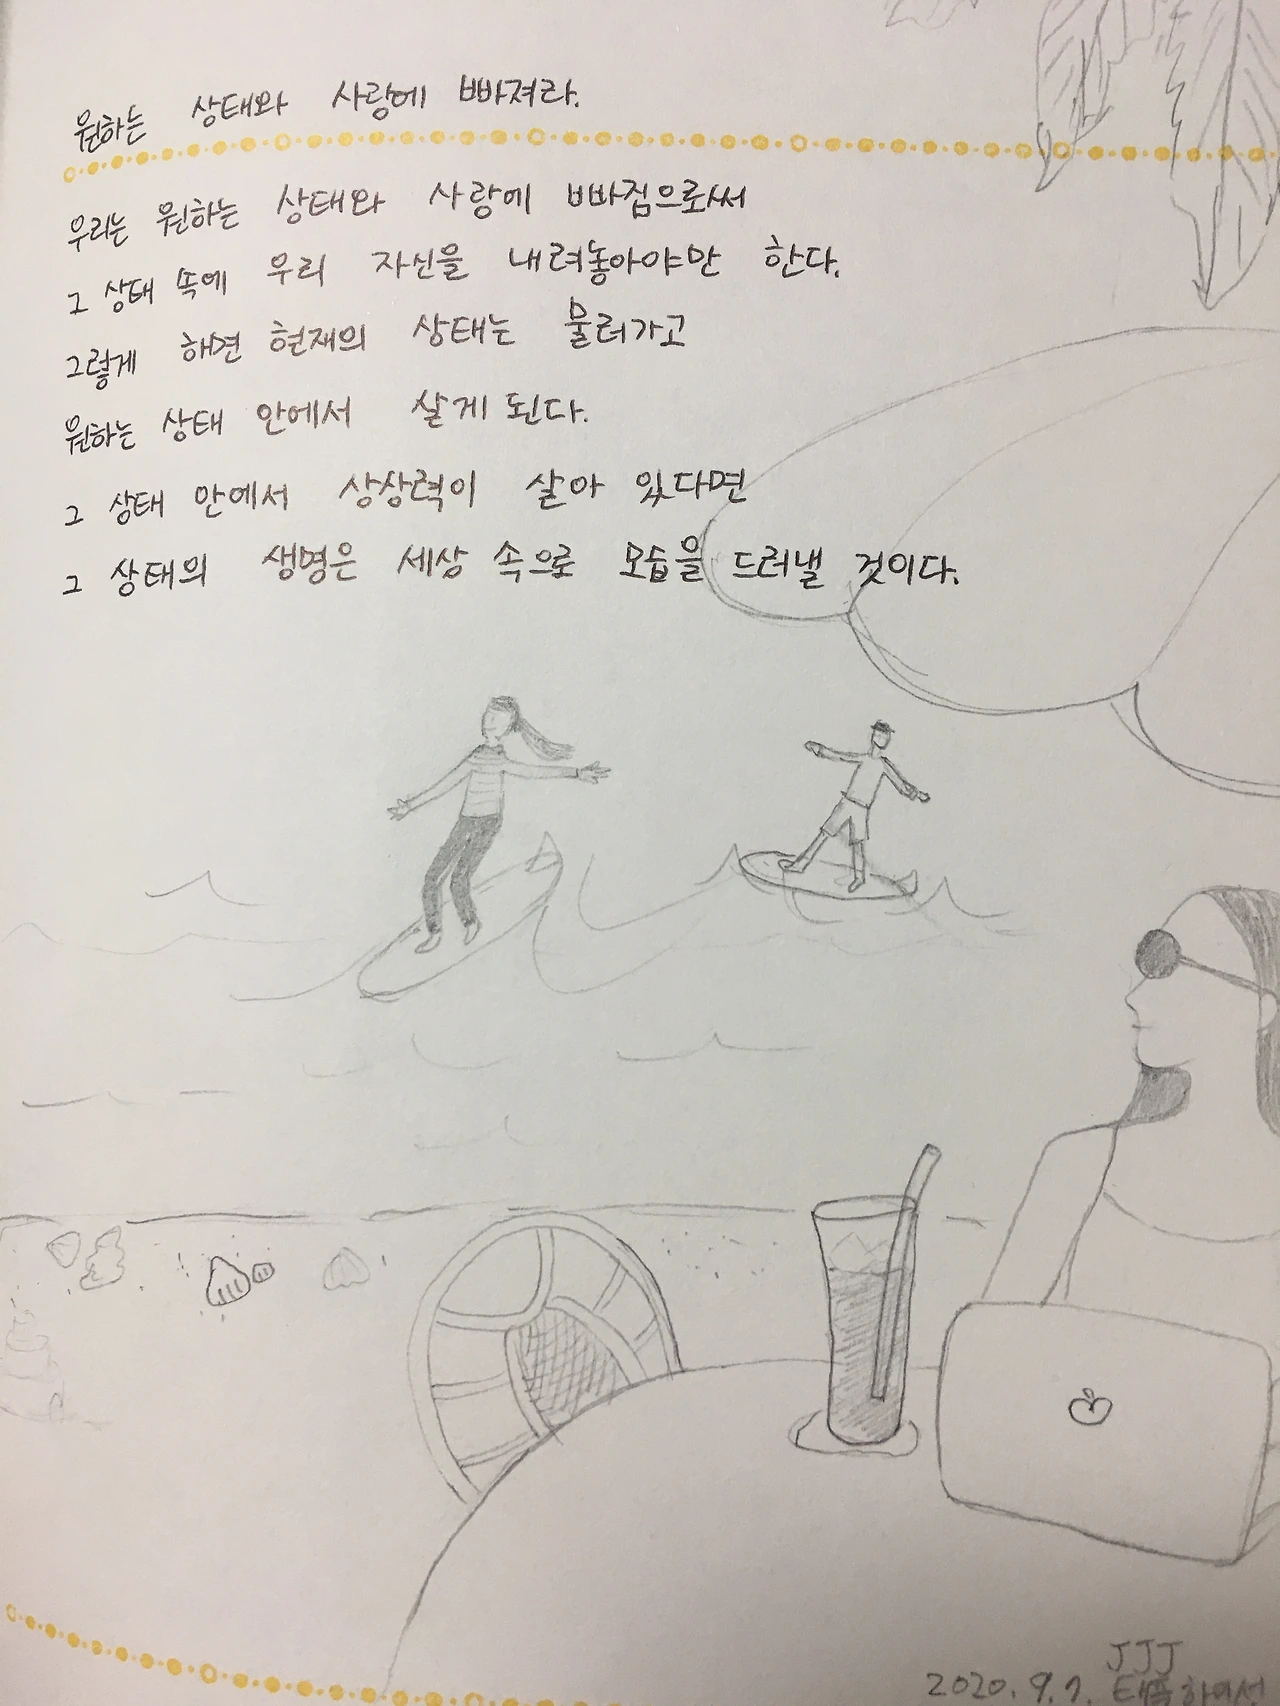 원하는 상태와 사랑에 빠져라.
우리는 원하는 상태와 사랑에 빠짐으로써
그 상태 속에 우리 자신을 내려놓아야만 한다.
그렇게 하면 현재의 상태는 물러가고
원하는 상태 안에서 살게 된다.
그 상태 안에서 상상력이 살아 있다면
그 상태의 생명은 세상 속으로 모습을 드러낼 것이다.
JJJ
2020. 9. 7.